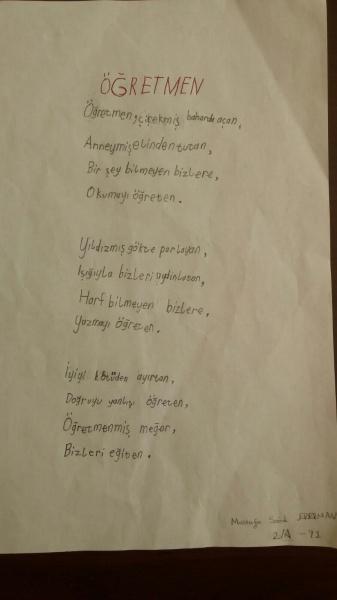 ÖĞRETMEN
Öğretmen, çiçekmiş baharda açan,
Anneymiş elinden tutan,
Bir şey bilmeyen bizlere,
Okumayı öğreten.
Yıldızmış gökte parlayan,
Işığıyla bizleri aydınlatan,
Harf bilmeyen bizlere,
Yazmayı öğreten.
İyiyi kötüden ayırtan,
Doğruyu yanlışı öğreten,
Öğretmenmiş meğer,
Bizleri eğiten.
Mustafa
2/A - 71